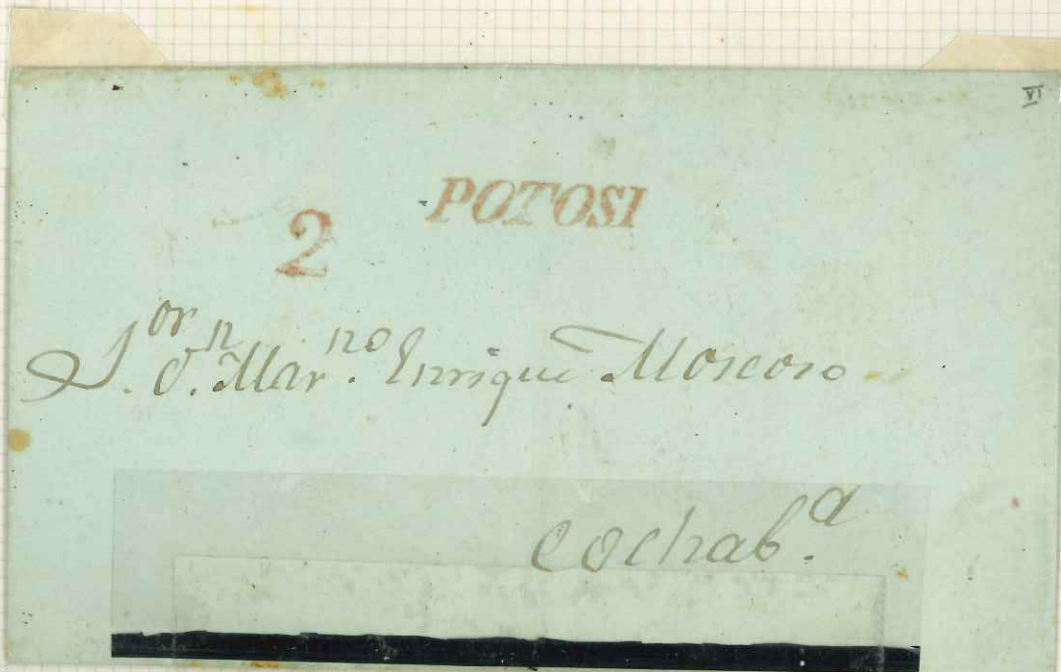 VI
POTOSI
2
S.or D.n Mar.no Enrique Moscoso
Cochab.a